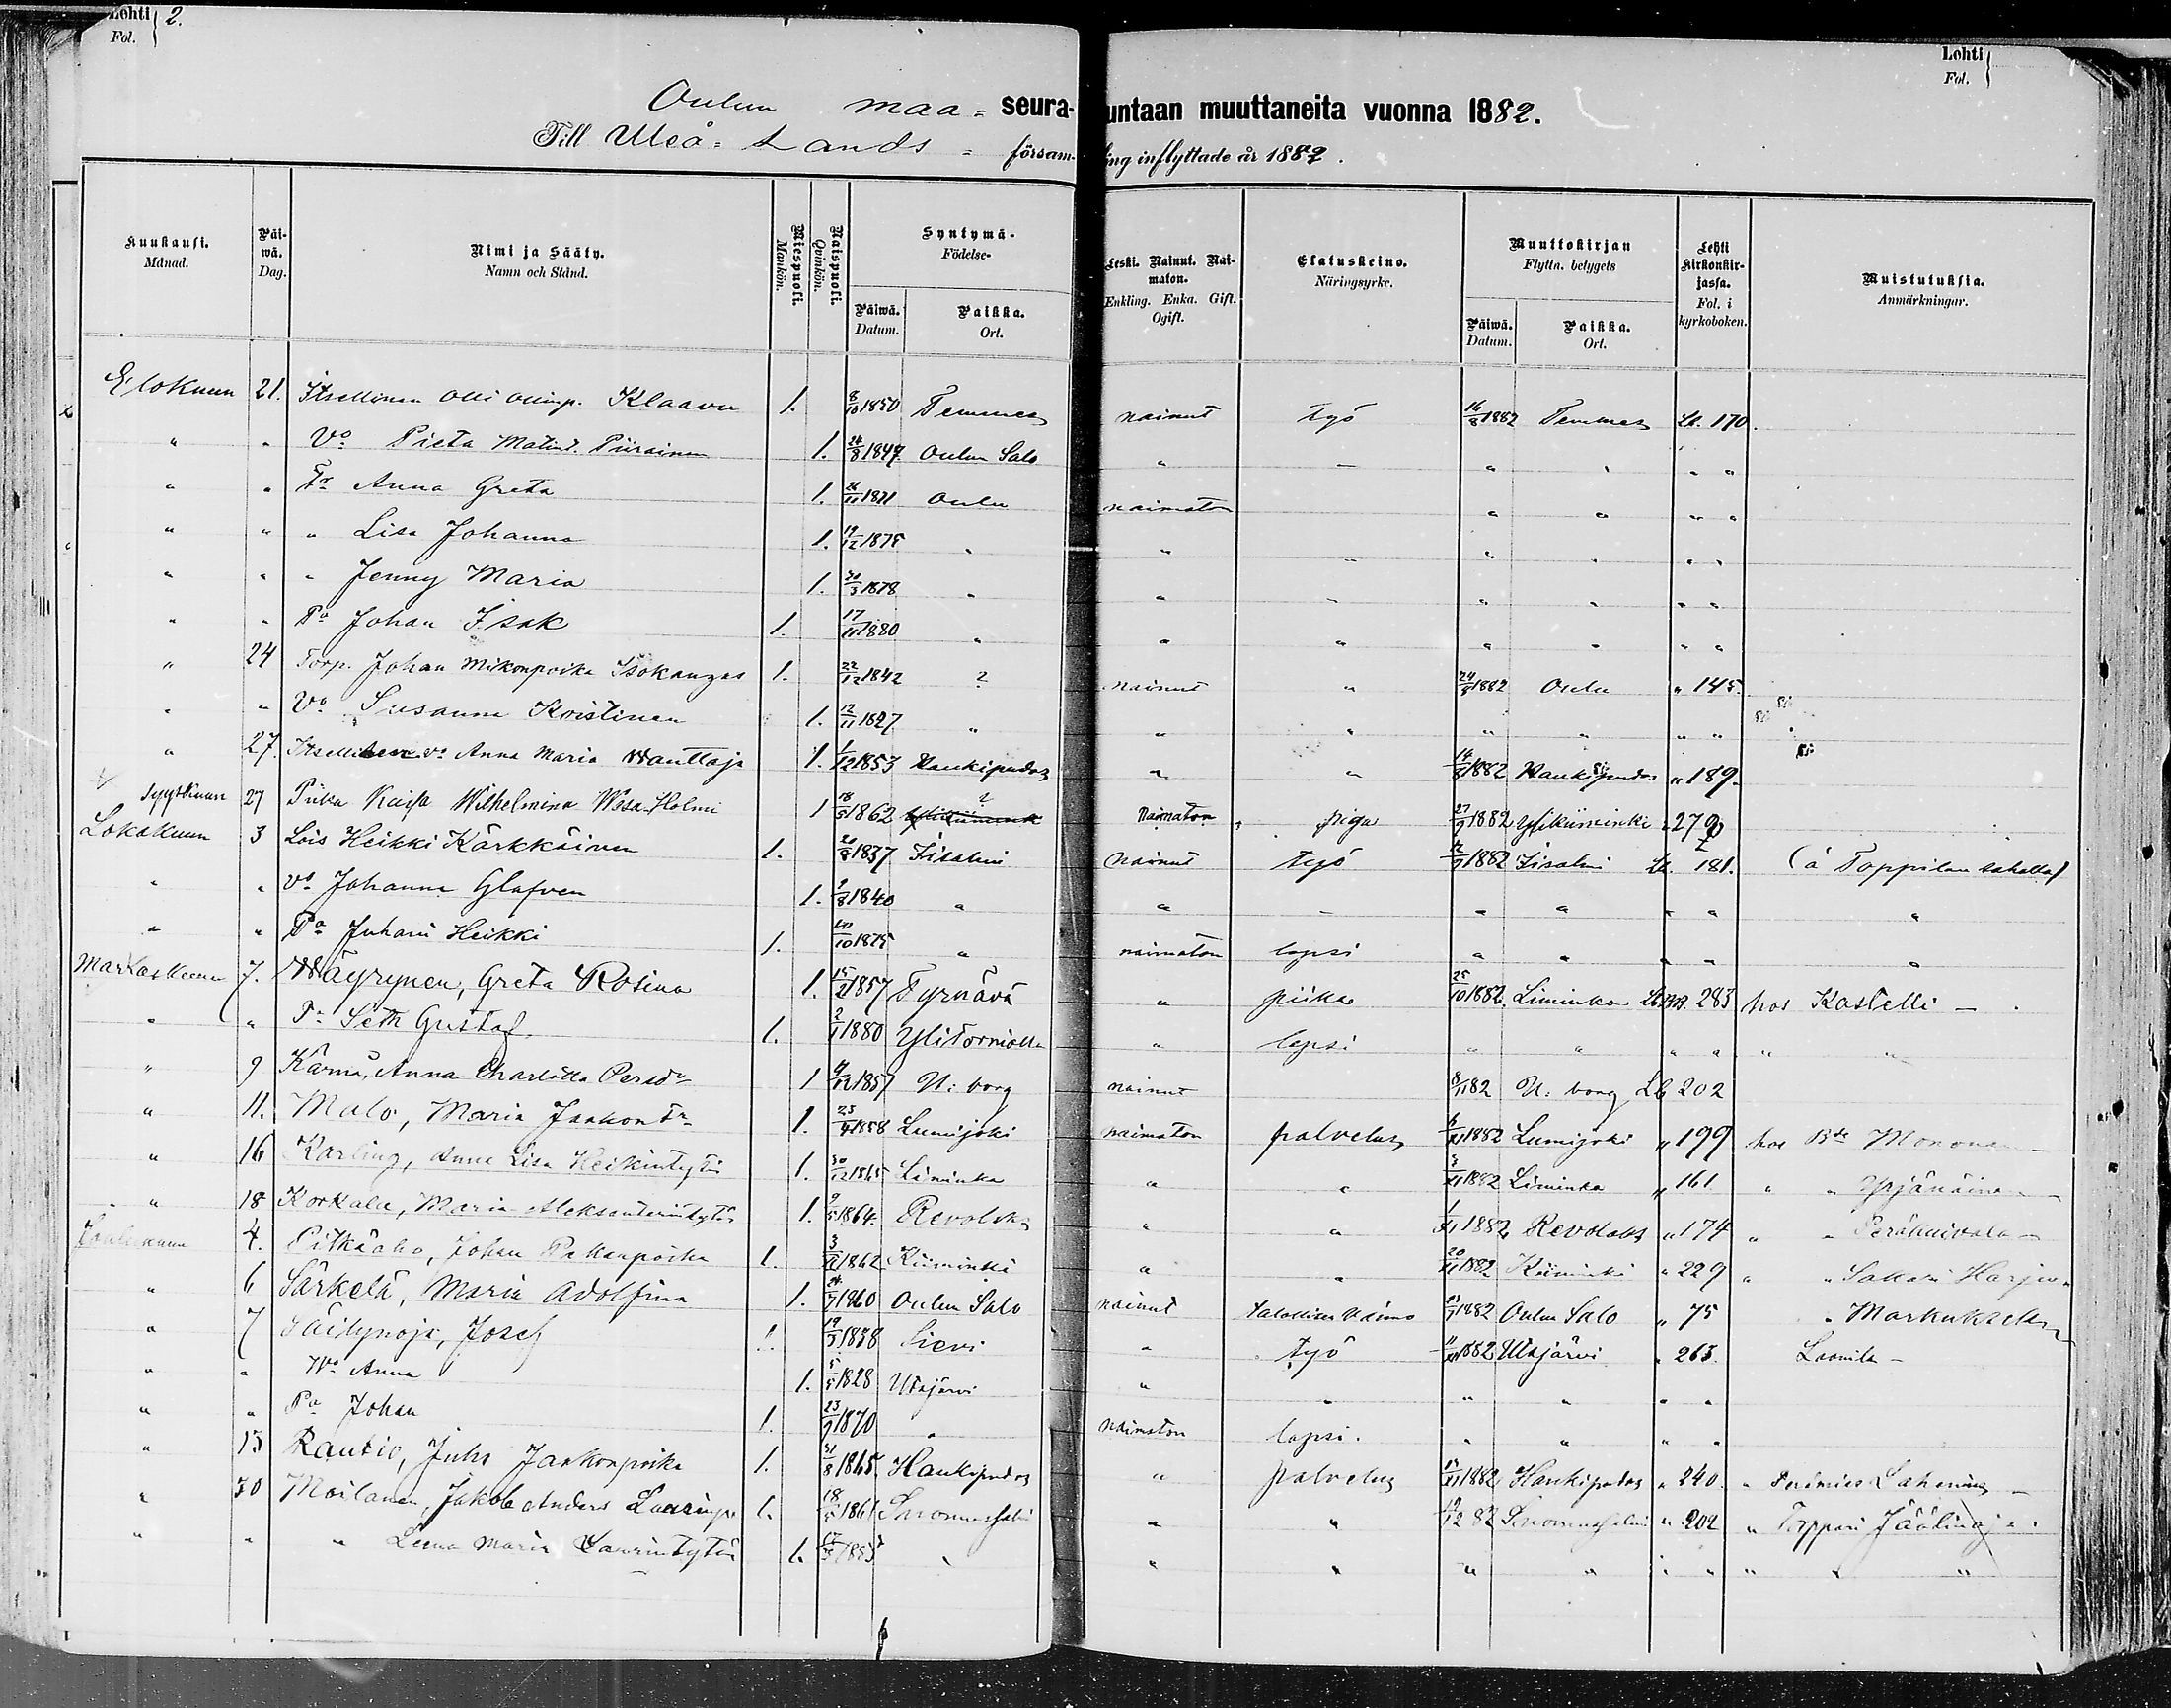 Lehti Fol. 2.
Lehti Fol.
Oulun maa- seurakuntaan muuttaneita vuonna 1882.
Till Uleå-Lands- församling inflyttade år 1882.
Kuukausi. Månad. Päiwä. Dag. Nimi ja Sääty. Namn och Stånd. Miespuoli. Mankön. Naispuoli. Qvinkön. Syntymä- Födelse- Päiwä. Datum. Paikka. Ort. Leski. Nainut. Naimaton. Enkling. Enka. Gift. Ogift. Elatuskeino. Näringsyrke. Muuttokirjan Flyttn. betygets Päiwä. Datum. Paikka. Ort. Lehti Kirkonkirjassa. Fol. i kyrkoboken. Muistutuksia. Anmärkningar.
Elokuun 21. Itsellinen Olli Ollinp. Klaavu 1. 8/10 1850 Temmes nainut työ 16/8 1882 Temmes Lt. 170.
" " Vo Pieta Matint. Piirainen 1. 24/8 1847 Oulun Salo " – " " " "
" " Tr Anna Greta 1. 26/11 1871 Oulu naimaton " " " "
" " " Lisa Johanna 1. 19/12 1875 " " " " " " "
" " " Jenny Maria 1. 30/3 1878 " " " " " " "
" " Pa Johan Isak 1. 17/11 1880 " " " " " " "
" 24 Torp. Johan Mikonpoika Isokangas 1. 22/12 1842 ? nainut " 24/8 1882 Oulu " 145.
" " Vo Susanna Koistinen 1. 12/11 1827 " " " " " " "
" 27. Itsellinen vo Anna Maria Wanttaja 1. 1/12 1853 Haukipudas " " 14/8 1882 Haukipudas " 189.
Syyskuun 27 Piika Kaisa Wilhelmina Wesa-Holmi 1 18/5 1862 ? Naimaton piga 27/9 1882 Ylikiiminki " 279
Lokakuun 3 Lois Heikki Kärkkäinen 1. 20/8 1837 Iisalmi nainut työ 12/9 1882 Iisalmi Lt. 181. (à Toppilan sahalla)
" " vo Johanna Glafven 1. 9/8 1840 " " – " " " " "
" " Pa Juhani Heikki 1. 20/10 1875 " naimaton lapsi " " " " "
Marraskuun 7. Wäyrynen, Greta Rosina 1. 15/2 1857 Tyrnävä " piika 25/10 1882 Liminka Lt. BB. 283 hos Kastelli –
" " Pa Seth Gustaf 1. 2/1 1880 Ylitorniolla " lapsi " " " " " "
" 9 Kärnä, Anna Charlotta Persdr 1 4/12 1857 U:borg nainut 8/11 82 U:borg Lb 202
" 11. Malo, Maria Jaakontr 1. 23/4 1858 Lumijoki naimaton palvelus 6/11 1882 Lumijoki " 199 hos Bde Monona
" 16 Karling, Anna Lisa Heikintytär 1. 30/12 1865 Liminka " " 3/11 1882 Liminka " 161 " " Yrjänäinen
" 18 Korkala, Maria Aleksanterintytär 1. 9/5 1864. Revolaks " " 1/11 1882 Revolaks " 174 " " Peräkuivala –
Joulukuun 4. Pitkäaho, Johan Pekanpoika 1. 1862 Kiiminki " " 20/11 1882 Kiiminki " 229 " " Sakari Harju
" 6 Särkelä, Maria Adolfina 1. 24/7 1860 Oulun Salo nainut talollisen vaimo 1882 Oulun Salo " 75 " Markuksela
" 7 Säilynoja, Josef 1. 19/3 1838 Sievi " työ 11/11 1882 Utajärvi " 263. Laanila –
" " Wo Anna 1. 5/5 1828 Utajärvi " " " " " "
" " Pa Johan 1. 23/9 1870 " naimaton lapsi. " " " "
" 13 Rautio, Juho Jaakonpoika 1. 31/8 1865. Haukipudas " palvelus 1882 Haukipudas " 240. " Lahening –
" 30 Moilanen, Jakob Anders Laurinp. 1. 1861 Suomussalmi " " 19/12 82 Suomussalmi " 202 " Torppari Jäälinoja.
" " " Leena Maria Laurintytär 1. " " " " " " " " " "